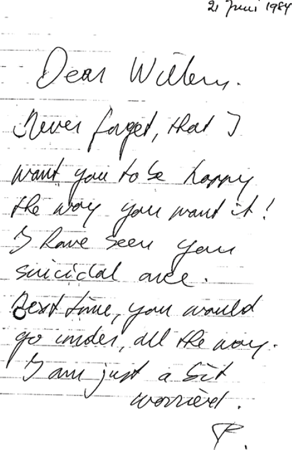 21 Juni 1984
Dear Willem.
Never forget, that I
want you to be happy
the way you want it!
I have seen you
suicidal once.
Next time, you would
go under, all the way.
I am just a bit
worried.
P.